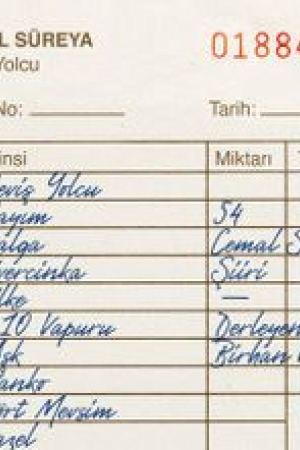 L SÜREYA 0188
Yolcu
No: Tarih:
insi Miktarı
eviş Yolcu
ayım 54
alga Cemal S
vercinka Şiiri
lke —
10 Vapuru Derleyen
Aşk Birhan
anko
ört Mevsim
azel